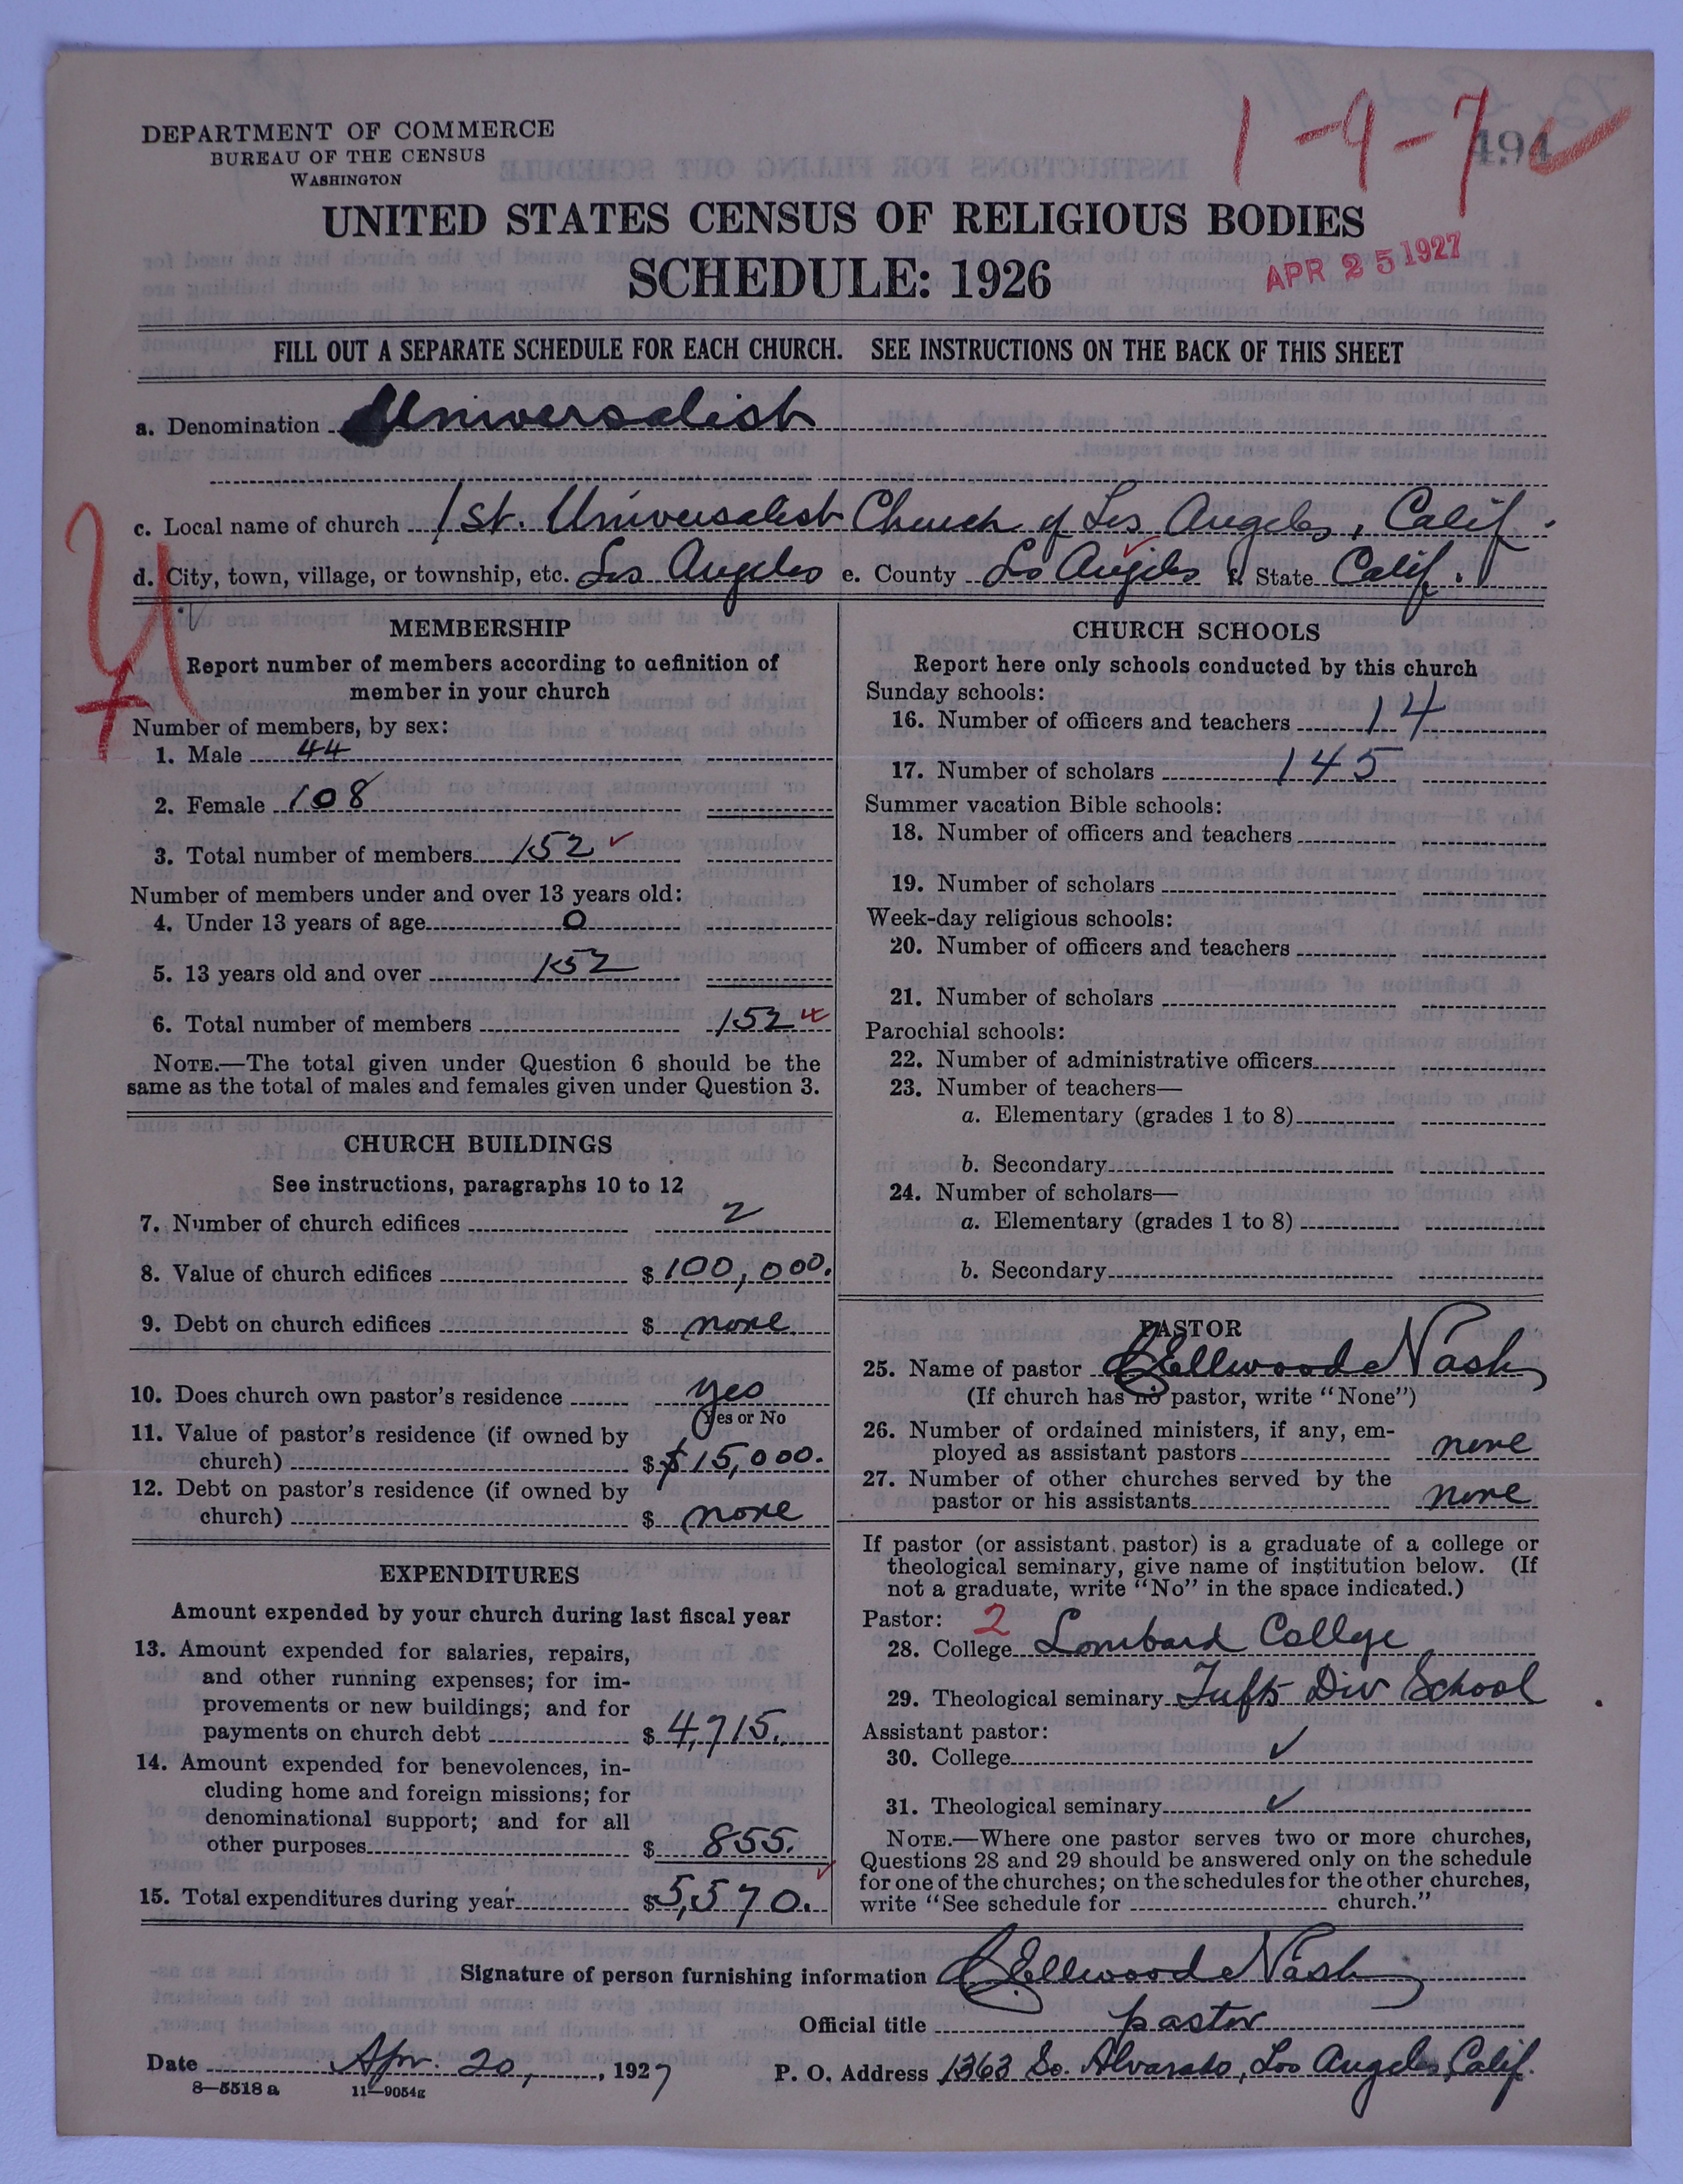 DEPARTMENT OF COMMERCE
BUREAU OF THE CENSUS
WASHINGTON
1-9-7
494
UNITED STATES CENSUS OF RELIGIOUS BODIES
SCHEDULE: 1926
APR 25 1927
FILL OUT A SEPARATE SCHEDULE FOR EACH CHURCH. SEE INSTRUCTIONS ON THE BACK OF THIS SHEET
a. Denomination Universalist
c. Local name of church 1st. Universalist Church of Los Angeles, Calif.
d. City, town, village, or township, etc. Los Angeles e. County Los Angeles f. State Calif.
MEMBERSHIP
Report number of members according to definition of
member in your church
Number of members, by sex:
1. Male 44
2. Female 108
3. Total number of members 152 ✓
Number of members under and over 13 years old:
4. Under 13 years of age 0
5. 13 years old and over 152
6. Total number of members 152
NOTE.—The total given under Question 6 should be the
same as the total of males and females given under Question 3.
CHURCH BUILDINGS
See instructions, paragraphs 10 to 12
7. Number of church edifices 2
8. Value of church edifices $ 100,000.
9. Debt on church edifices $ none
10. Does church own pastor's residence yes
Yes or No
11. Value of pastor's residence (if owned by
church) $ $15,000.
12. Debt on pastor's residence (if owned by
church) $ none
EXPENDITURES
Amount expended by your church during last fiscal year
13. Amount expended for salaries, repairs,
and other running expenses; for im-
provements or new buildings; and for
payments on church debt $ 4,715.
14. Amount expended for benevolences, in-
cluding home and foreign missions; for
denominational support; and for all
other purposes $ 855.
15. Total expenditures during year $ 5,570. ✓
CHURCH SCHOOLS
Report here only schools conducted by this church
Sunday schools:
16. Number of officers and teachers 14
17. Number of scholars 145
Summer vacation Bible schools:
18. Number of officers and teachers
19. Number of scholars
Week-day religious schools:
20. Number of officers and teachers
21. Number of scholars
Parochial schools:
22. Number of administrative officers
23. Number of teachers—
a. Elementary (grades 1 to 8)
b. Secondary
24. Number of scholars—
a. Elementary (grades 1 to 8)
b. Secondary
PASTOR
25. Name of pastor C Ellwood Nash
(If church has no pastor, write "None")
26. Number of ordained ministers, if any, em-
ployed as assistant pastors none
27. Number of other churches served by the
pastor or his assistants none
If pastor (or assistant pastor) is a graduate of a college or
theological seminary, give name of institution below. (If
not a graduate, write "No" in the space indicated.)
Pastor: 2
28. College Lombard College
29. Theological seminary Tufts Div School
Assistant pastor:
30. College ✓
31. Theological seminary ✓
NOTE.—Where one pastor serves two or more churches,
Questions 28 and 29 should be answered only on the schedule
for one of the churches; on the schedules for the other churches,
write "See schedule for church."
Signature of person furnishing information C Ellwood Nash
Official title pastor
Date Apr. 20, 1927 P. O. Address 1363 So. Alvarado, Los Angeles, Calif.
8—5518 a 11—9054g